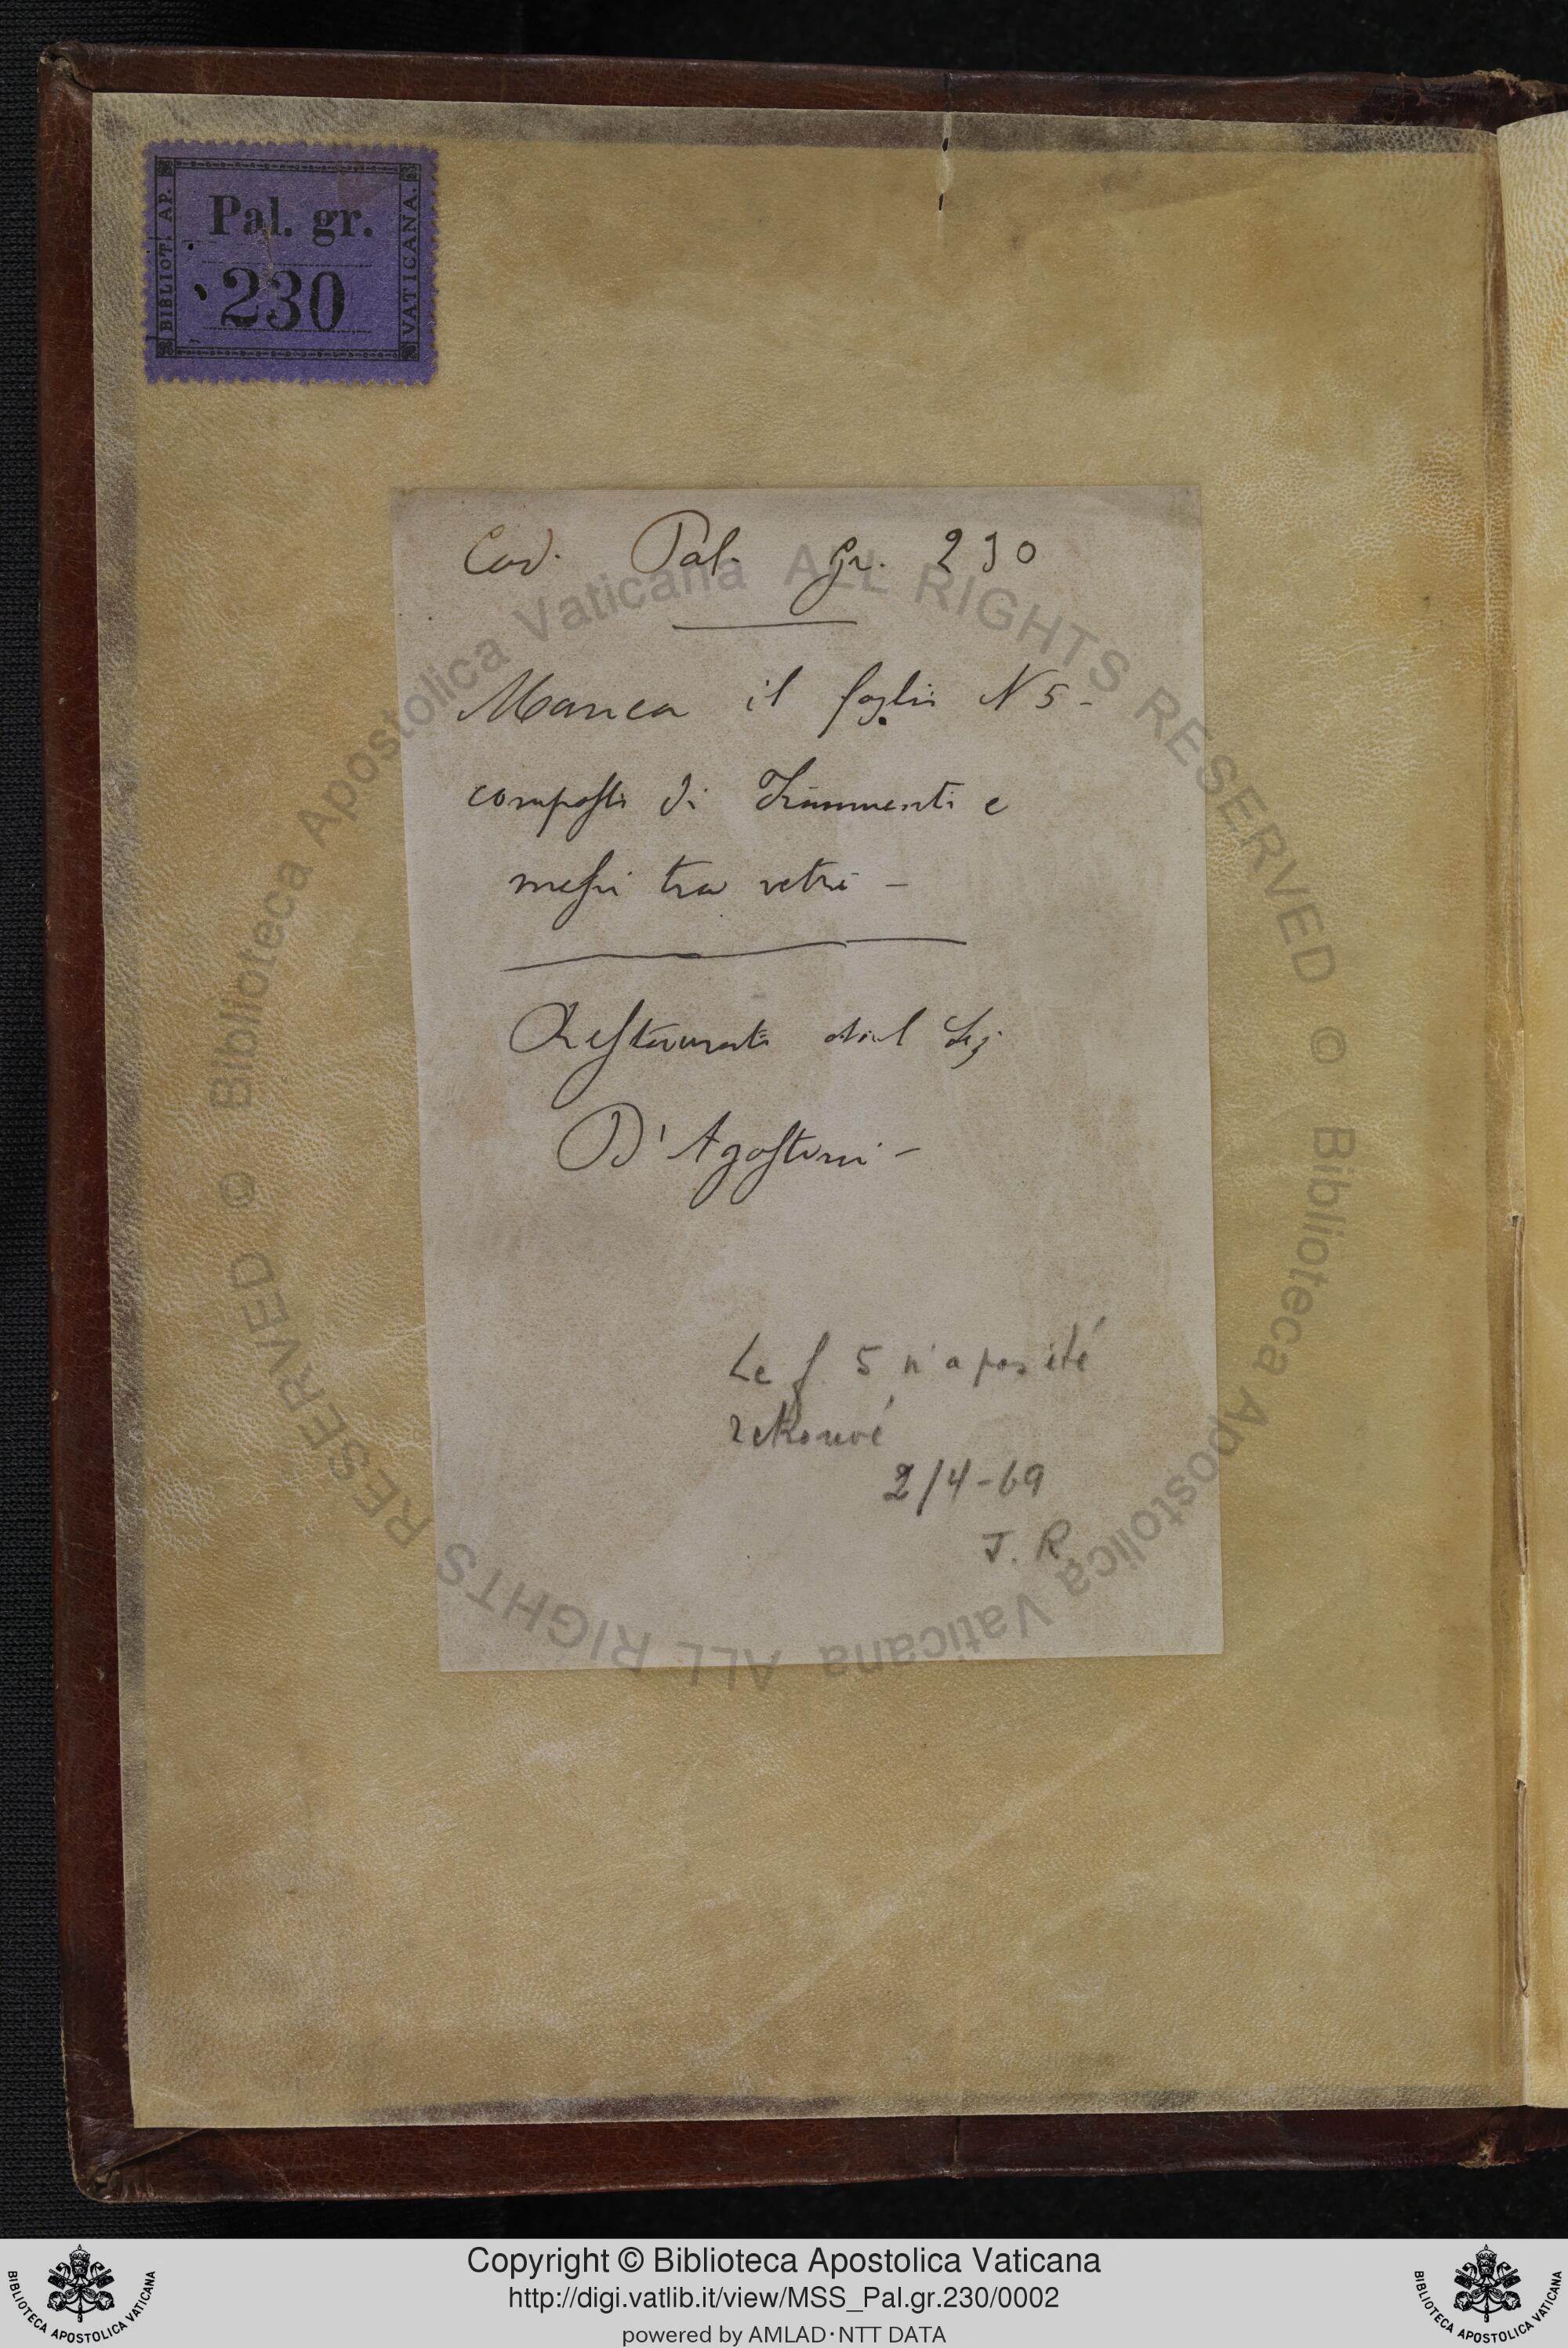 Pal. gr.
230
BIBLIOT. AP.
VATICANA.
Cod. Pal. gr. 230
Manca il foglio N 5 -
composto di frammenti e
messi tra vetri -
Restaurato dal Sig
D'Agostini -
Le f. 5 n'a pas été
retrouvé
2/4-69
J. R.
© Biblioteca Apostolica Vaticana ALL RIGHTS RESERVED
© Biblioteca Apostolica Vaticana ALL RIGHTS RESERVED
Copyright © Biblioteca Apostolica Vaticana
http://digi.vatlib.it/view/MSS_Pal.gr.230/0002
powered by AMLAD·NTT DATA
BIBLIOTECA APOSTOLICA VATICANA
BIBLIOTECA APOSTOLICA VATICANA